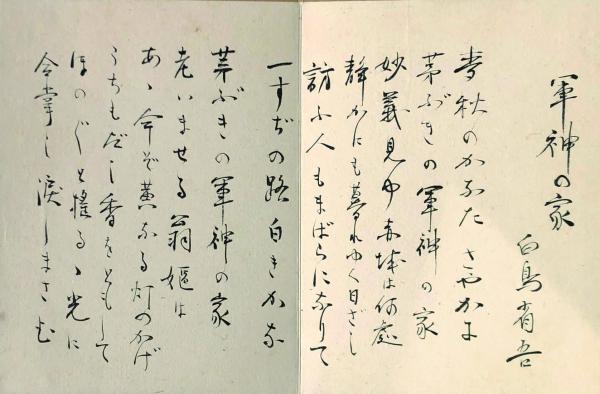 軍神の家
白鳥省吾
麦秋のかなたさやかに
茅ぶきの軍神の家
妙義見ゆ赤城は何處
静かにも暮れゆく日ざし
訪ふ人もまばらになりて
一すぢの路白きかな
茅ぶきの軍神の家
老いませる翁嫗は
あゝ今ぞ黄なる灯のかげ
うちもだし香をともして
ほの〴〵と揺るゝ光に
合掌し涙しまさむ